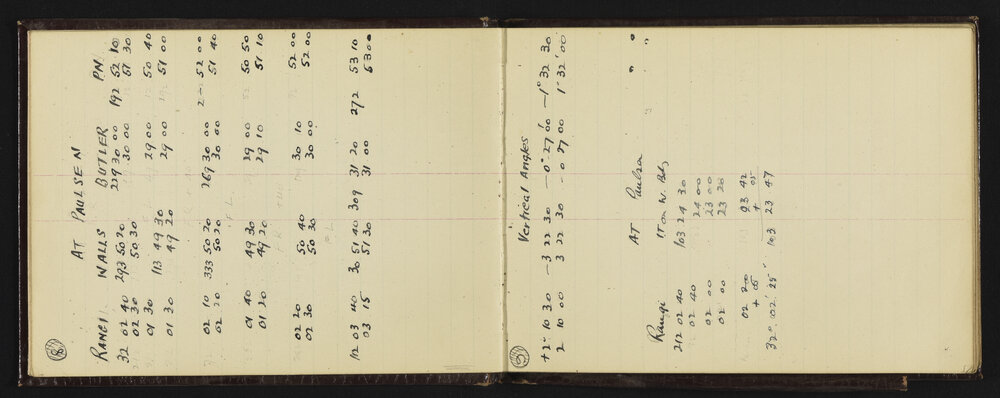 8
AT PAULSEN
RANGI WALLS BUTLER PN
32 02 40 293 50 20 229 30 00 192 52 10
02 30 50 30 30 00 51 30
01 30 113 49 30 29 00 50 40
01 30 49 20 29 00 51 00
02 10 333 50 20 269 30 00 52 00
02 20 50 20 30 00 51 40
01 40 49 30 29 00 50 50
01 20 49 20 29 10 51 10
02 20 50 40 30 10 52 00
02 30 50 30 30 00 52 00
112 03 40 30 51 40 309 31 20 272 53 10
03 15 51 30 31 00 53 00
Vertical Angles
+2° 10 30 —3 22 30 —0° 27' 00 —1° 32 30
2 10 00 3 22 30 —0 27 00 1° 32' 00
AT Paulsen " "
Rangi IT on W. Bdy "
212 02 40 103 24 30
02 40 24 00
02 00 23 00
02 00 23 20
02 20 23 42
+ 05 + 05
32° 02' 25" 103 23 47